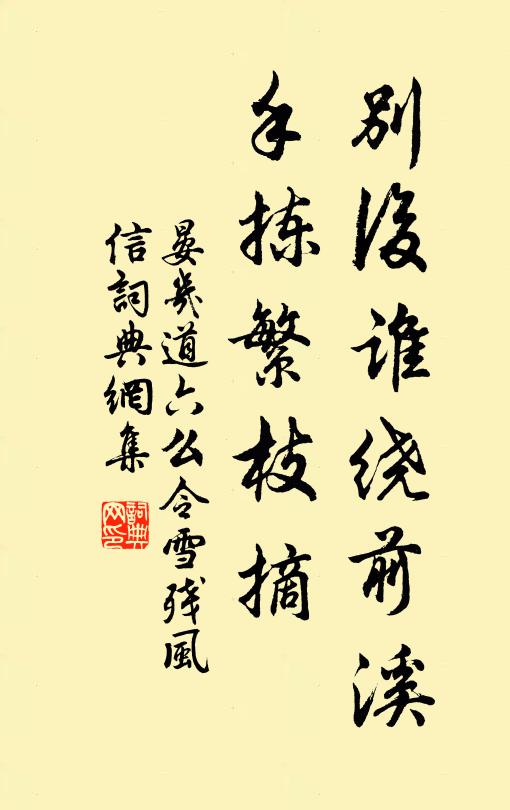 別後谁绕前溪
手拣繁枝摘
晏幾道六么令雪残風
信詞典網集
詞典
网印